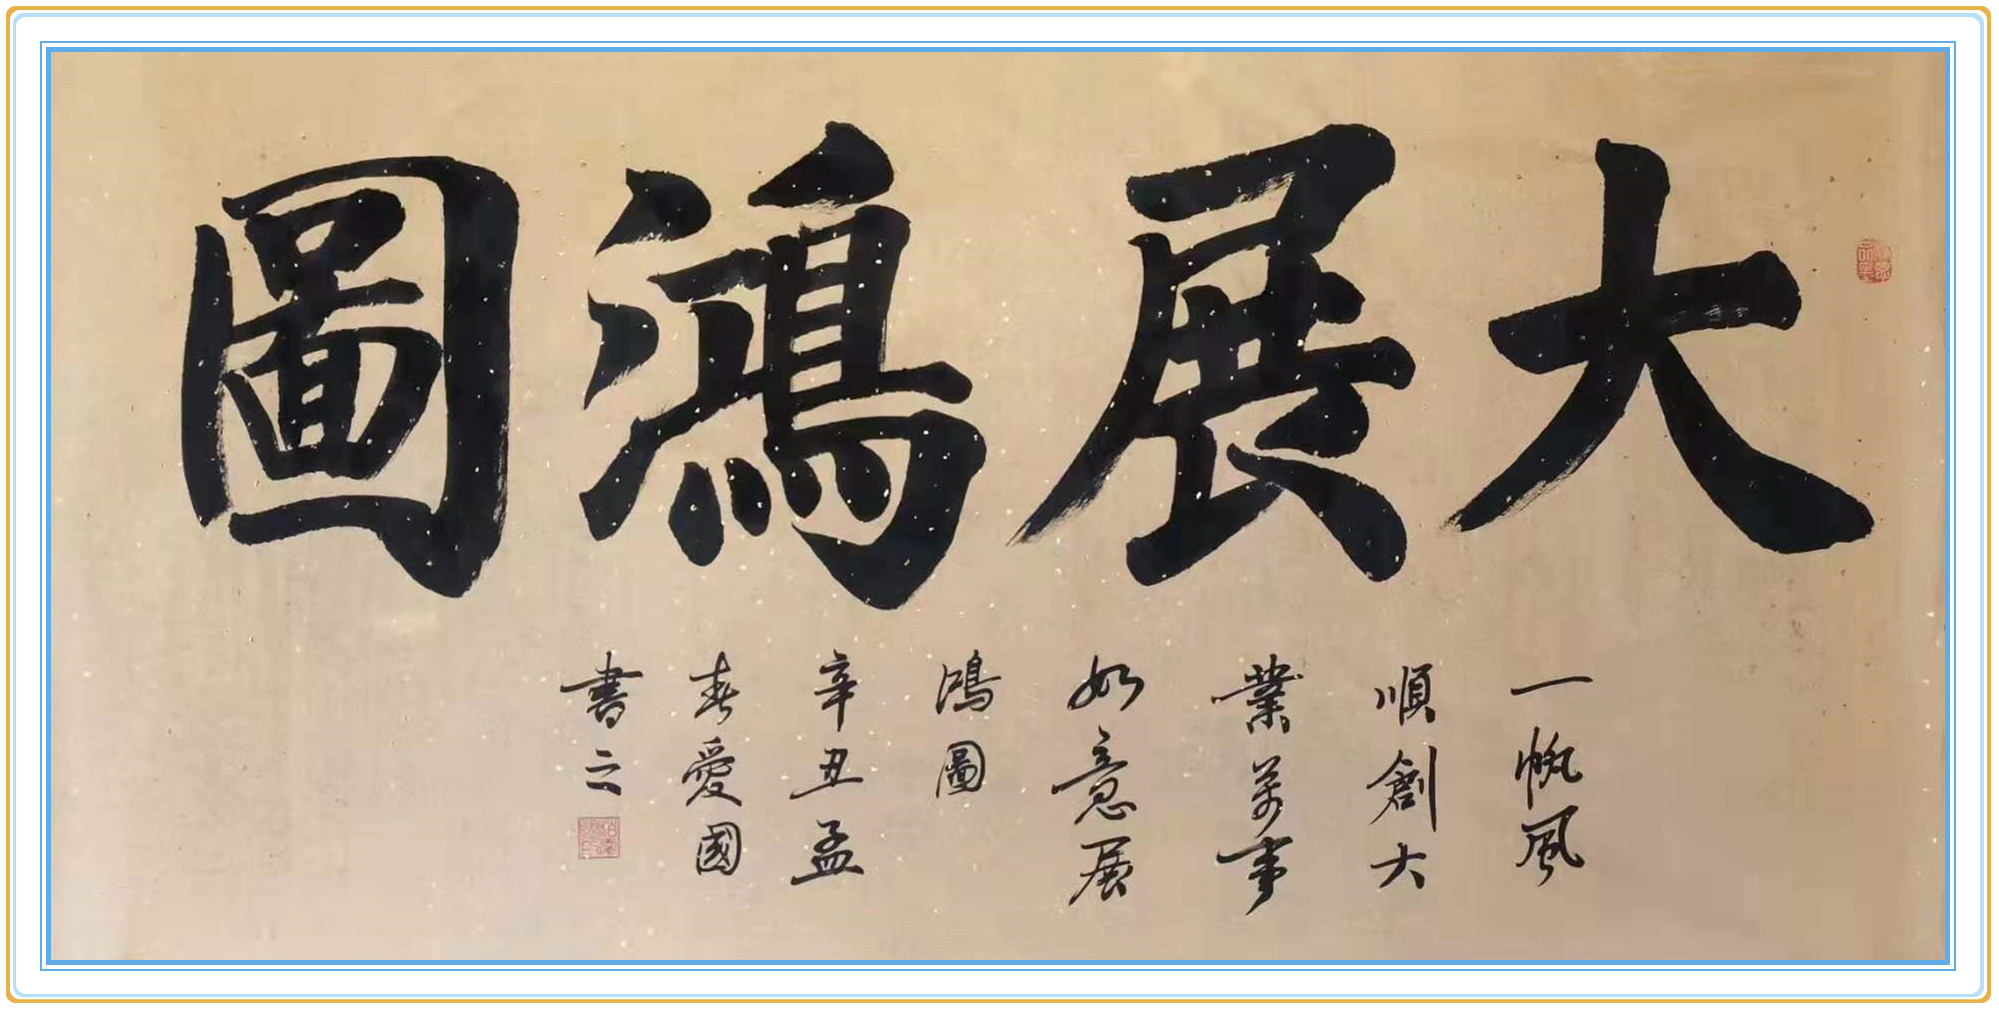 大展鴻圖
一帆風
順創大
業萬事
如意展
鴻圖
辛丑孟
春愛國
書之